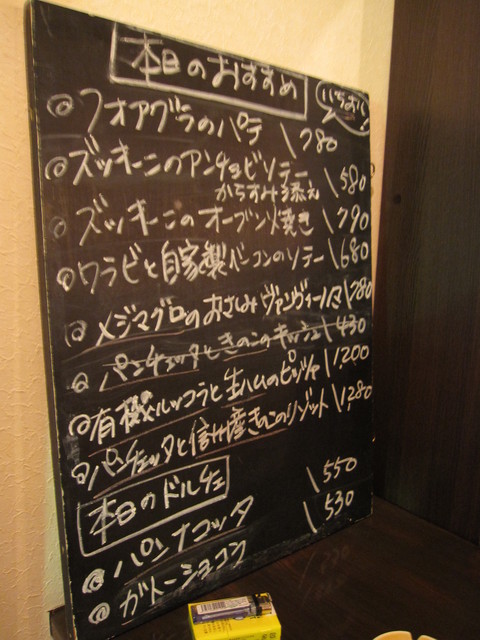 本日のおすすめ
いちおし!
◎フォアグラのパテ \780
◎ズッキーニのアンチョビソテー \580
からすみ添え
◎ズッキーニのオーブン焼き \790
◎ワラビと自家製ベーコンのソテー \680
◎メジマグロのおさしみ ヴァンヴィーノマ \780
◎パンチェッタときのこのキッシュ \430
◎有機ルッコラと生ハムのピッツァ \1,200
◎パンチェッタと信州産きのこのリゾット \1,280
本日のドルチェ
◎パンナコッタ \550
◎ガトーショコン \530